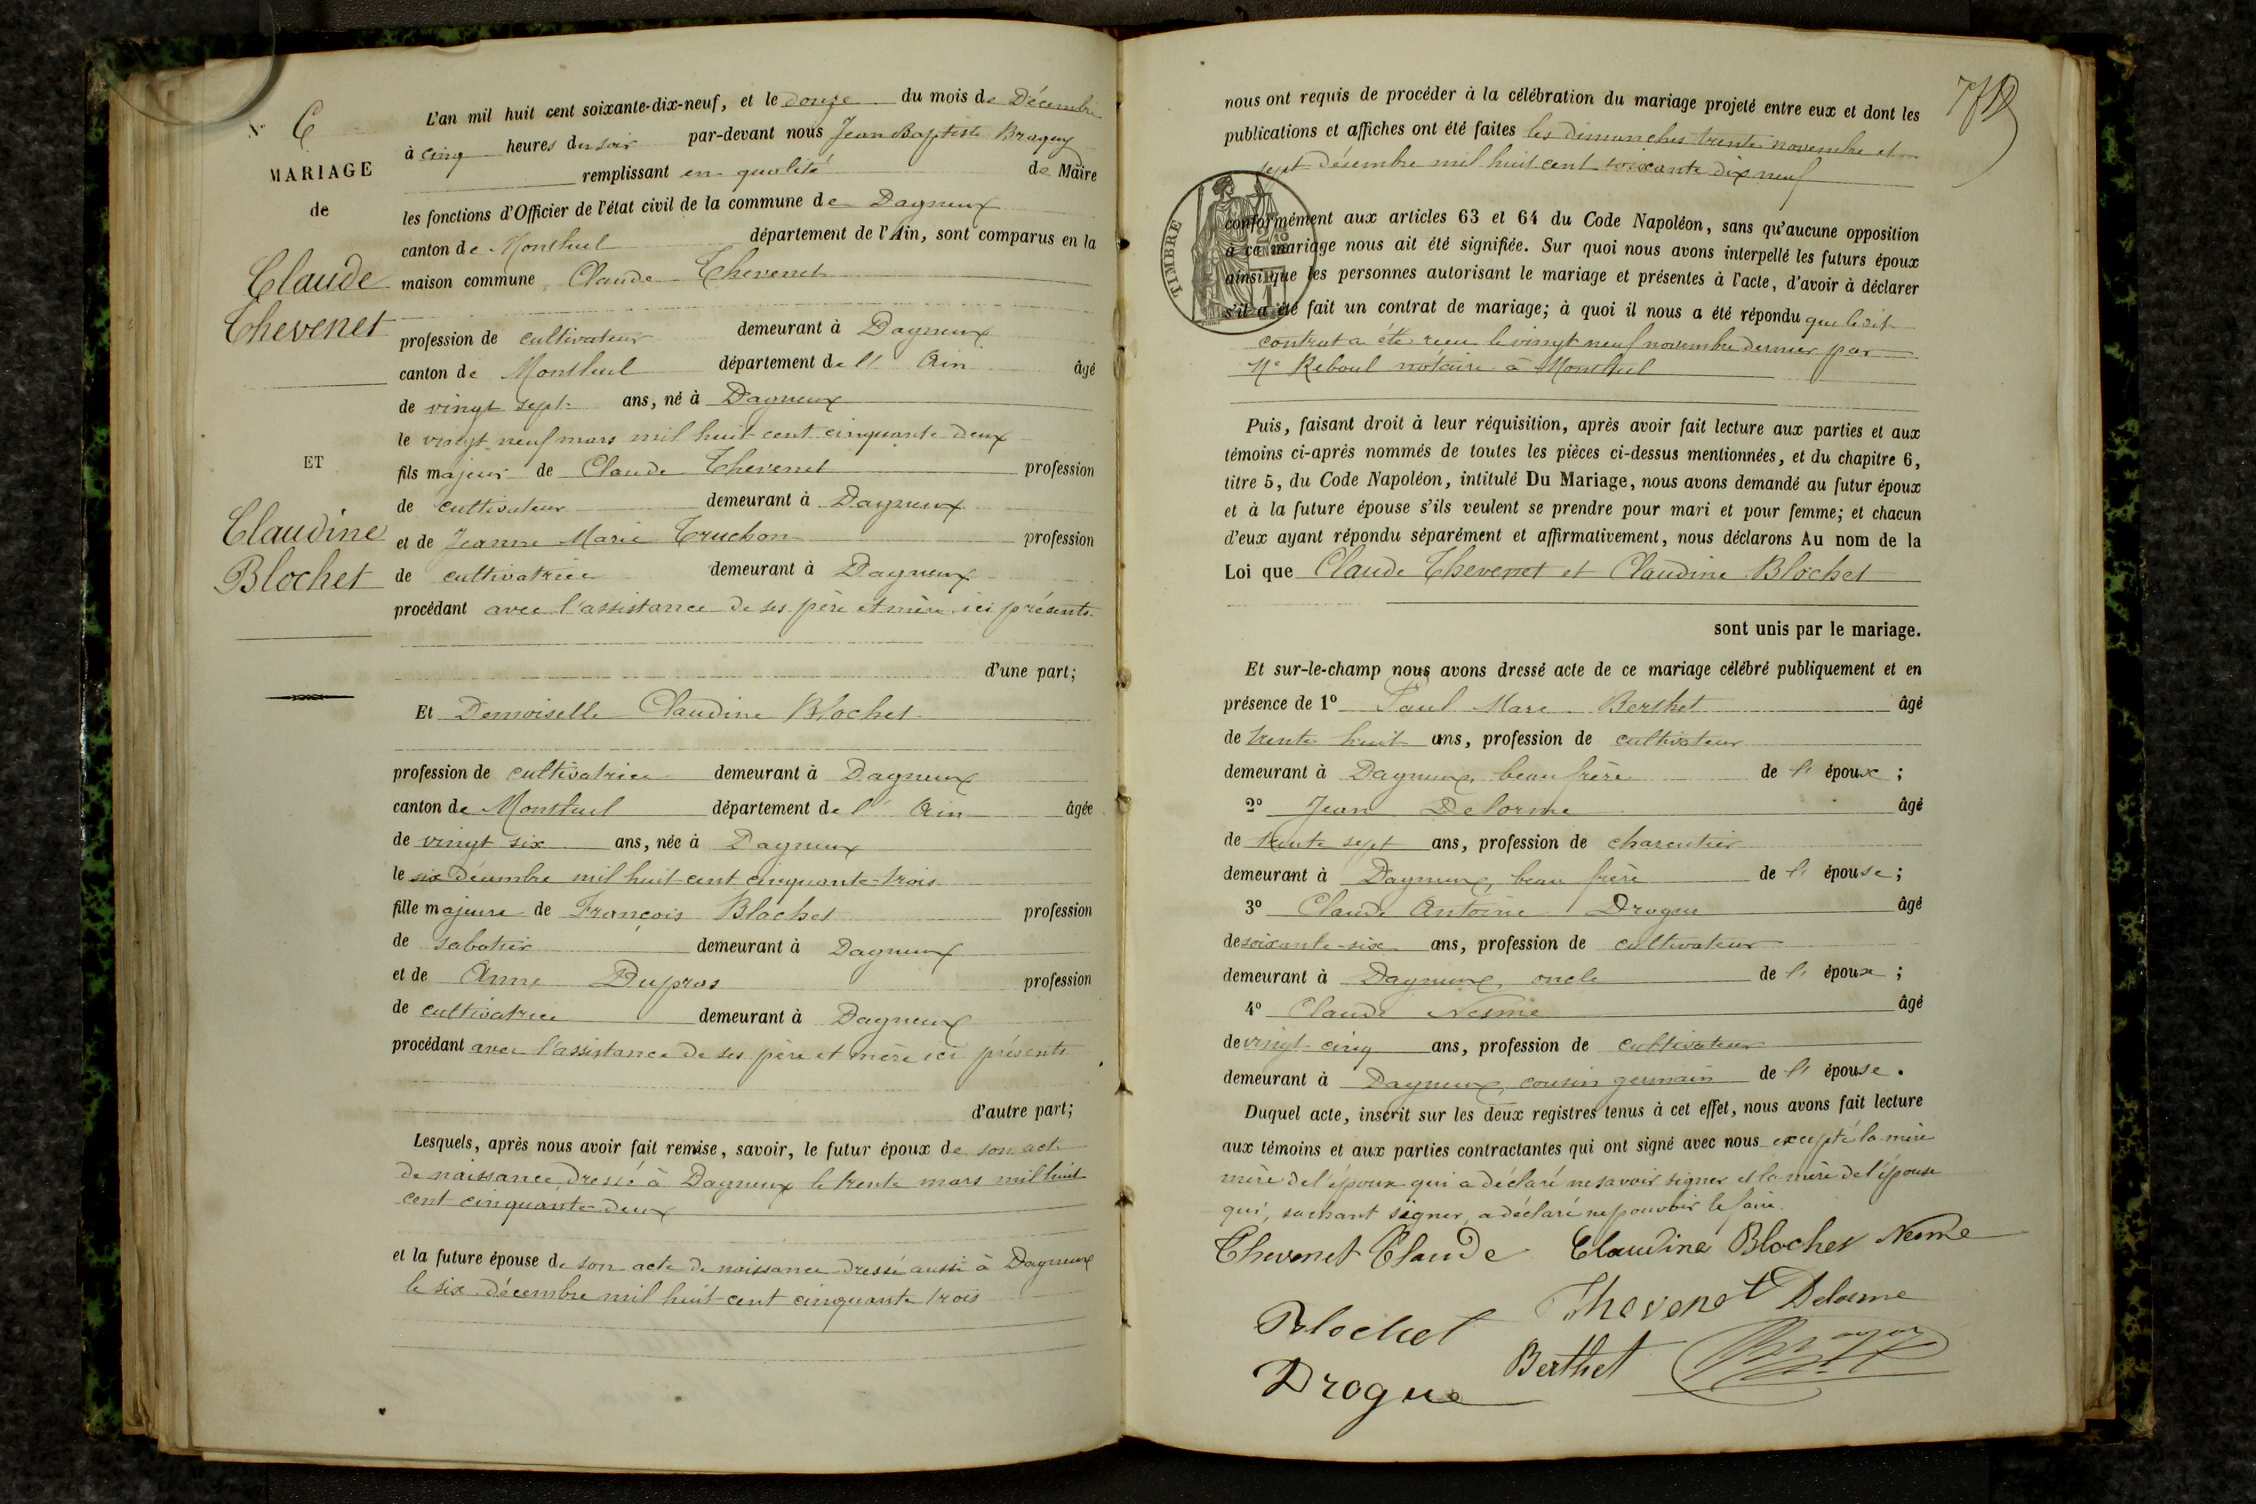 N° 6
MARIAGE
de
Claude
Thevenet
ET
Claudine
Blochet
L'an mil huit cent soixante-dix-neuf, et le douze du mois de Décembre
à cinq heures du soir par-devant nous Jean Baptiste
remplissant en qualité de Maire
les fonctions d'Officier de l'état civil de la commune de Dagneux
canton de Montluel département de l'Ain, sont comparus en la
maison commune Claude Thevenet
profession de cultivateur demeurant à Dagneux
canton de Montluel département de l' Ain âgé
de vingt sept ans, né à Dagneux
le vingt neuf mars mil huit cent cinquante deux
fils majeur de Claude Thevenet profession
de cultivateur demeurant à Dagneux
et de Jeanne Marie Truchon profession
de cultivatrice demeurant à Dagneux
procédant avec l'assistance de ses père et mère ici présents
d'une part;
Et Demoiselle Claudine Blochet
profession de cultivatrice demeurant à Dagneux
canton de Montluel département de l' Ain âgée
de vingt six ans, née à Dagneux
le six décembre mil huit cent cinquante-trois
fille majeure de François Blochet profession
de sabotier demeurant à Dagneux
et de Anne Dupras profession
de cultivatrice demeurant à Dagneux
procédant avec l'assistance de ses père et mère ici présents
d'autre part;
Lesquels, après nous avoir fait remise, savoir, le futur époux de son acte
de naissance dressé à Dagneux le trente mars mil huit
cent cinquante-deux
et la future épouse de son acte de naissance dressé aussi à Dagneux
le six décembre mil huit cent cinquante trois
nous ont requis de procéder à la célébration du mariage projeté entre eux et dont les
publications et affiches ont été faites les dimanches trente novembre et
sept décembre mil huit cent soixante dix neuf
TIMBRE
conformément aux articles 63 et 64 du Code Napoléon, sans qu'aucune opposition
à ce mariage nous ait été signifiée. Sur quoi nous avons interpellé les futurs époux
ainsi que les personnes autorisant le mariage et présentes à l'acte, d'avoir à déclarer
s'il a été fait un contrat de mariage; à quoi il nous a été répondu que ledit
contrat a été reçu le vingt neuf novembre dernier par
Me Reboul notaire à Montluel
Puis, faisant droit à leur réquisition, après avoir fait lecture aux parties et aux
témoins ci-après nommés de toutes les pièces ci-dessus mentionnées, et du chapitre 6,
titre 5, du Code Napoléon, intitulé Du Mariage, nous avons demandé au futur époux
et à la future épouse s'ils veulent se prendre pour mari et pour femme; et chacun
d'eux ayant répondu séparément et affirmativement, nous déclarons Au nom de la
Loi que Claude Thevenet et Claudine Blochet
sont unis par le mariage.
Et sur-le-champ nous avons dressé acte de ce mariage célébré publiquement et en
présence de 1° Paul Marc Berthet âgé
de trente huit ans, profession de cultivateur
demeurant à Dagneux, beau frère de l' époux ;
2° Jean Delorme âgé
de trente sept ans, profession de charcutier
demeurant à Dagneux, beau frère de l' épouse ;
3° Claude Antoine Drogue âgé
de soixante-six ans, profession de cultivateur
demeurant à Dagneux, oncle de l' époux ;
4° Claude Nesme âgé
de vingt-cinq ans, profession de cultivateur
demeurant à Dagneux, cousin germain de l' épouse .
Duquel acte, inscrit sur les deux registres tenus à cet effet, nous avons fait lecture
aux témoins et aux parties contractantes qui ont signé avec nous excepté la mère
mère de l'époux qui a déclaré ne savoir signer et la mère de l'épouse
qui, sachant signer, a déclaré ne pouvoir le faire.
Thevenet Claude Claudine Blochet Nesme
Blochet Thevenet Delorme
Drogue Berthet